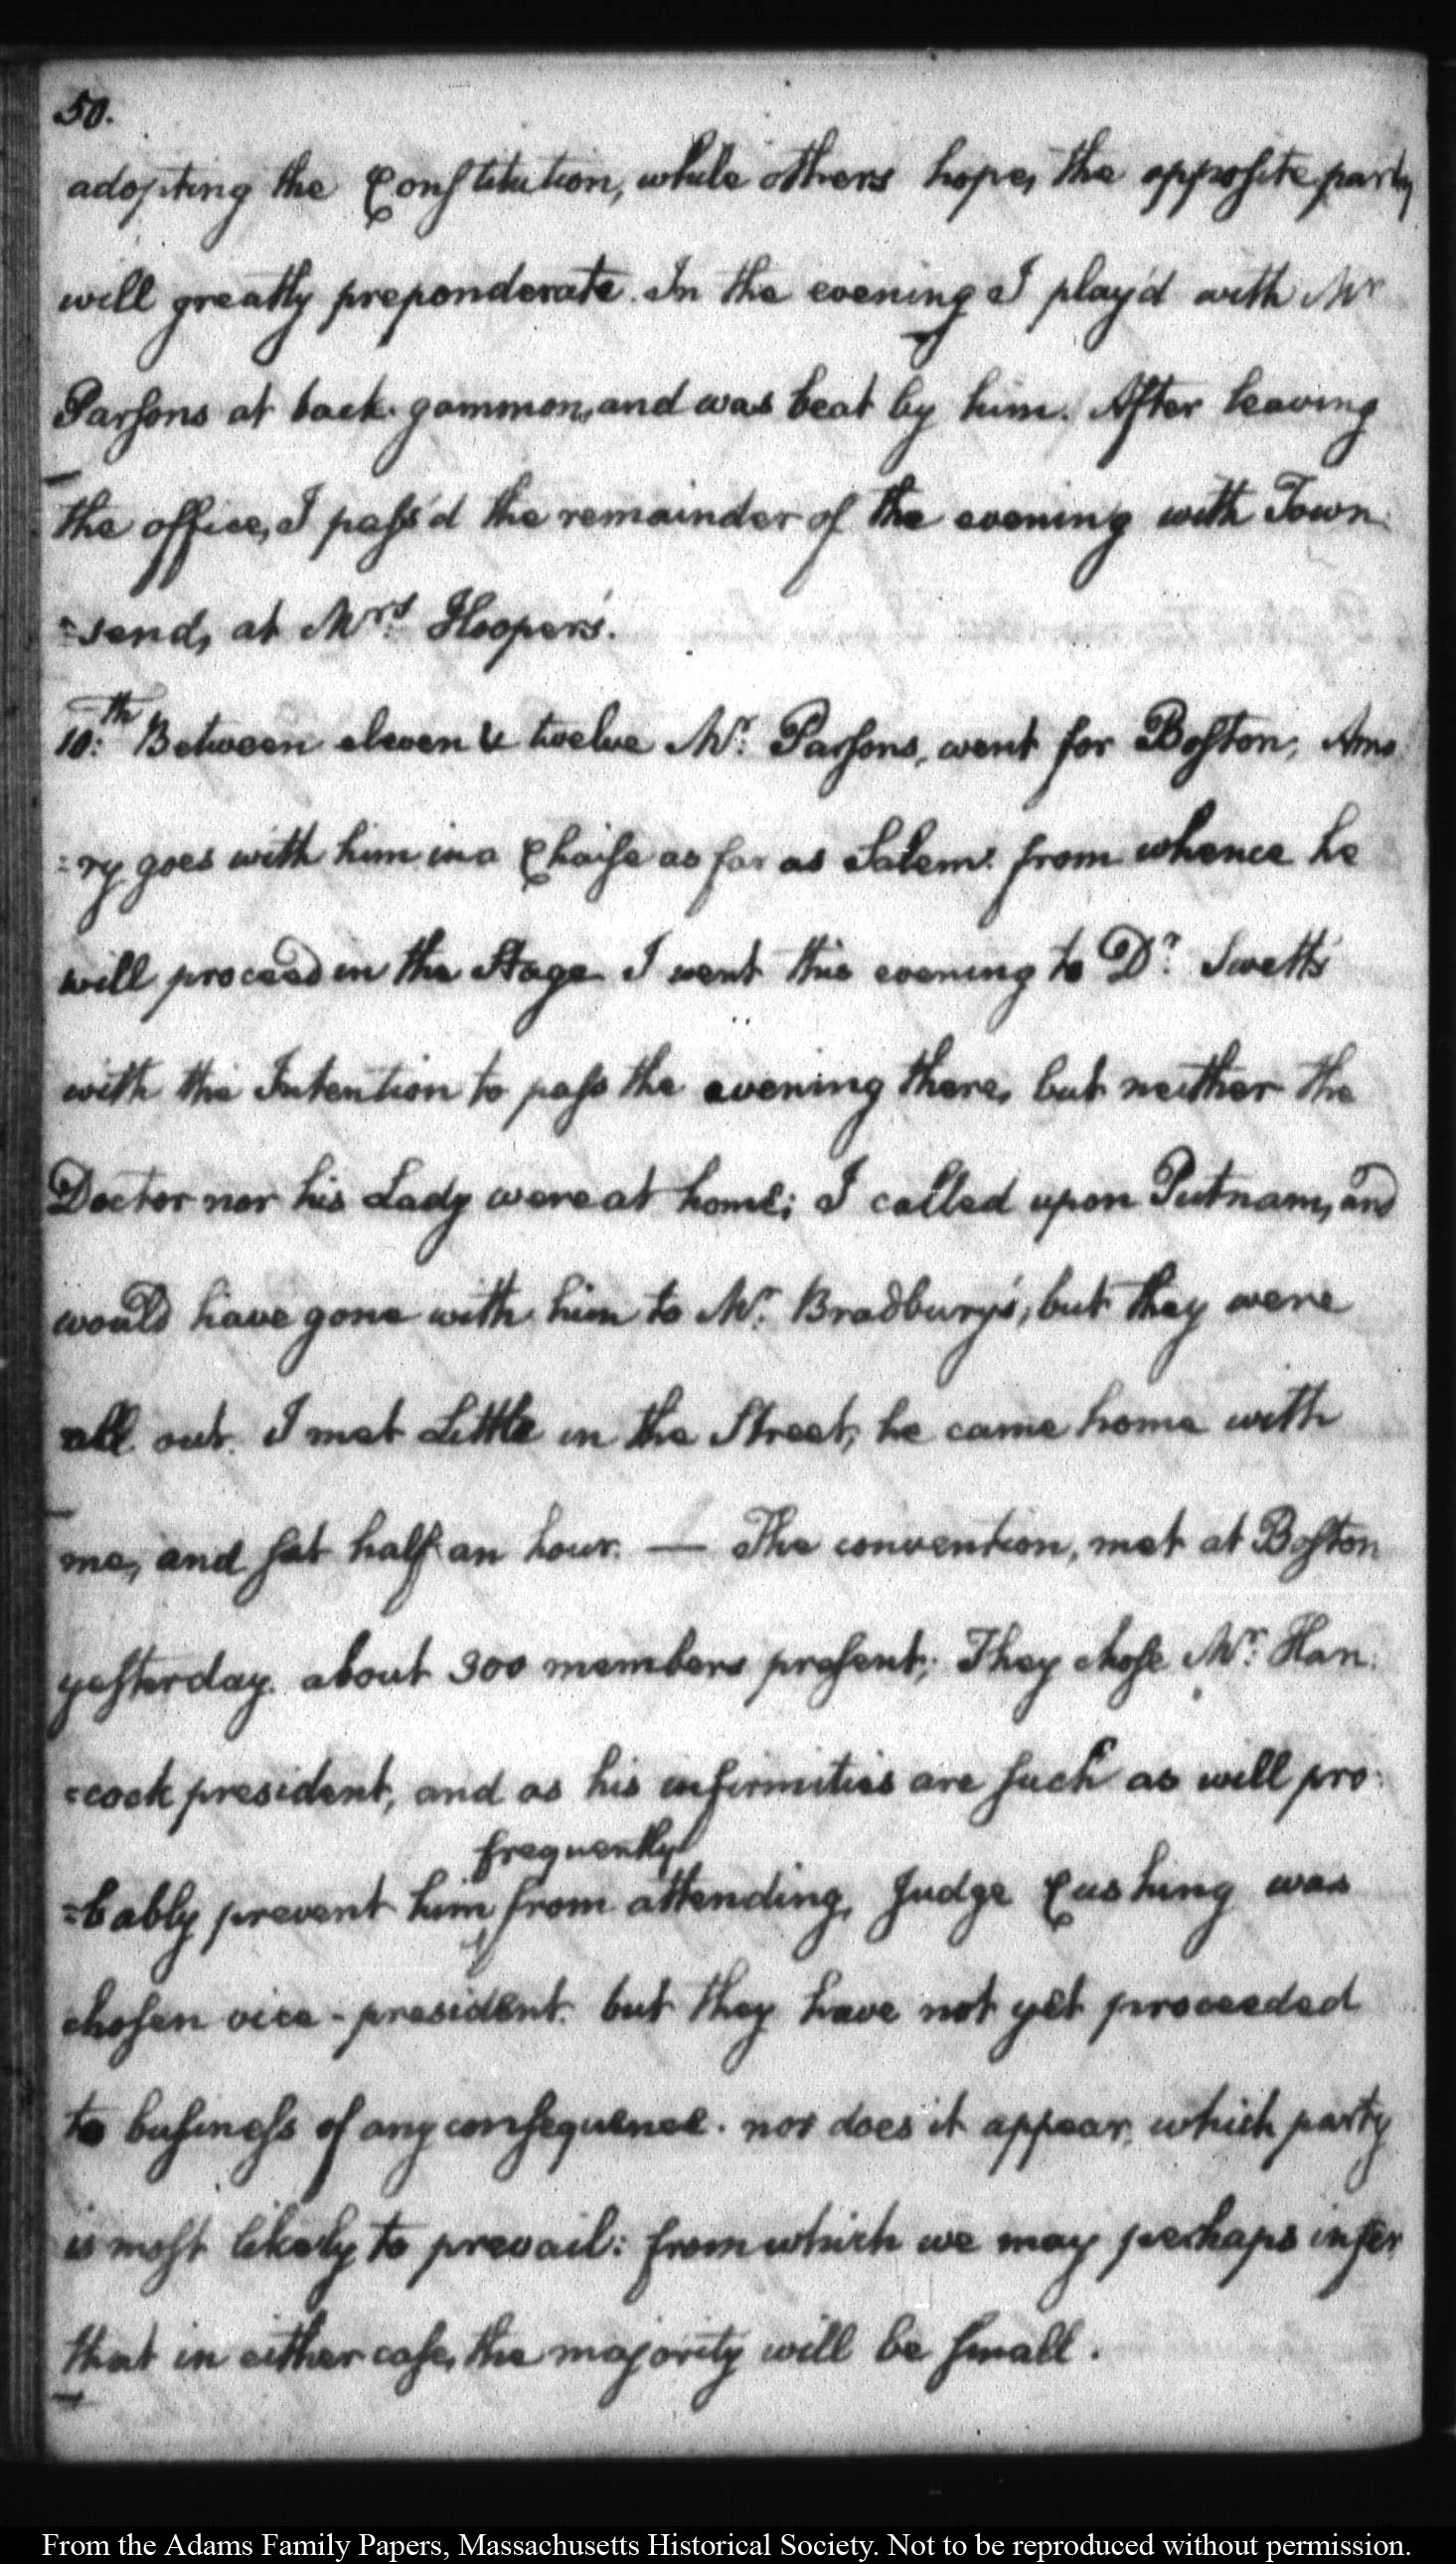 50.
adopting the Constitution, while others hope, the opposite party
will greatly preponderate. In the evening I play'd with Mr
Parsons at back-gammon, and was beat by him. After leaving
the office, I pass'd the remainder of the evening with Town-
-send, at Mrs. Hooper's.
10.th Between eleven & twelve Mr. Parsons, went for Boston; Amo-
-ry goes with him in a Chaise as far as Salem: from whence he
will proceed in the Stage. I went this evening to Dr. Swett's
with the Intention to pass the evening there, but neither the
Doctor nor his Lady were at home; I called upon Putnam, and
would have gone with him to Mr. Bradbury's, but they were
all out. I met Little in the Street; he came home with
me, and sat half an hour. — The convention, met at Boston
yesterday. about 300 members present; They chose Mr. Han-
-cock president, and as his infirmities are such as will pro-
frequently
-bably prevent him ‸ from attending, Judge Cushing was
chosen vice-president. but they have not yet proceeded
to business of any consequence. nor does it appear, which party
is most likely to prevail: from which we may perhaps infer
that in either case, the majority will be small.
From the Adams Family Papers, Massachusetts Historical Society. Not to be reproduced without permission.